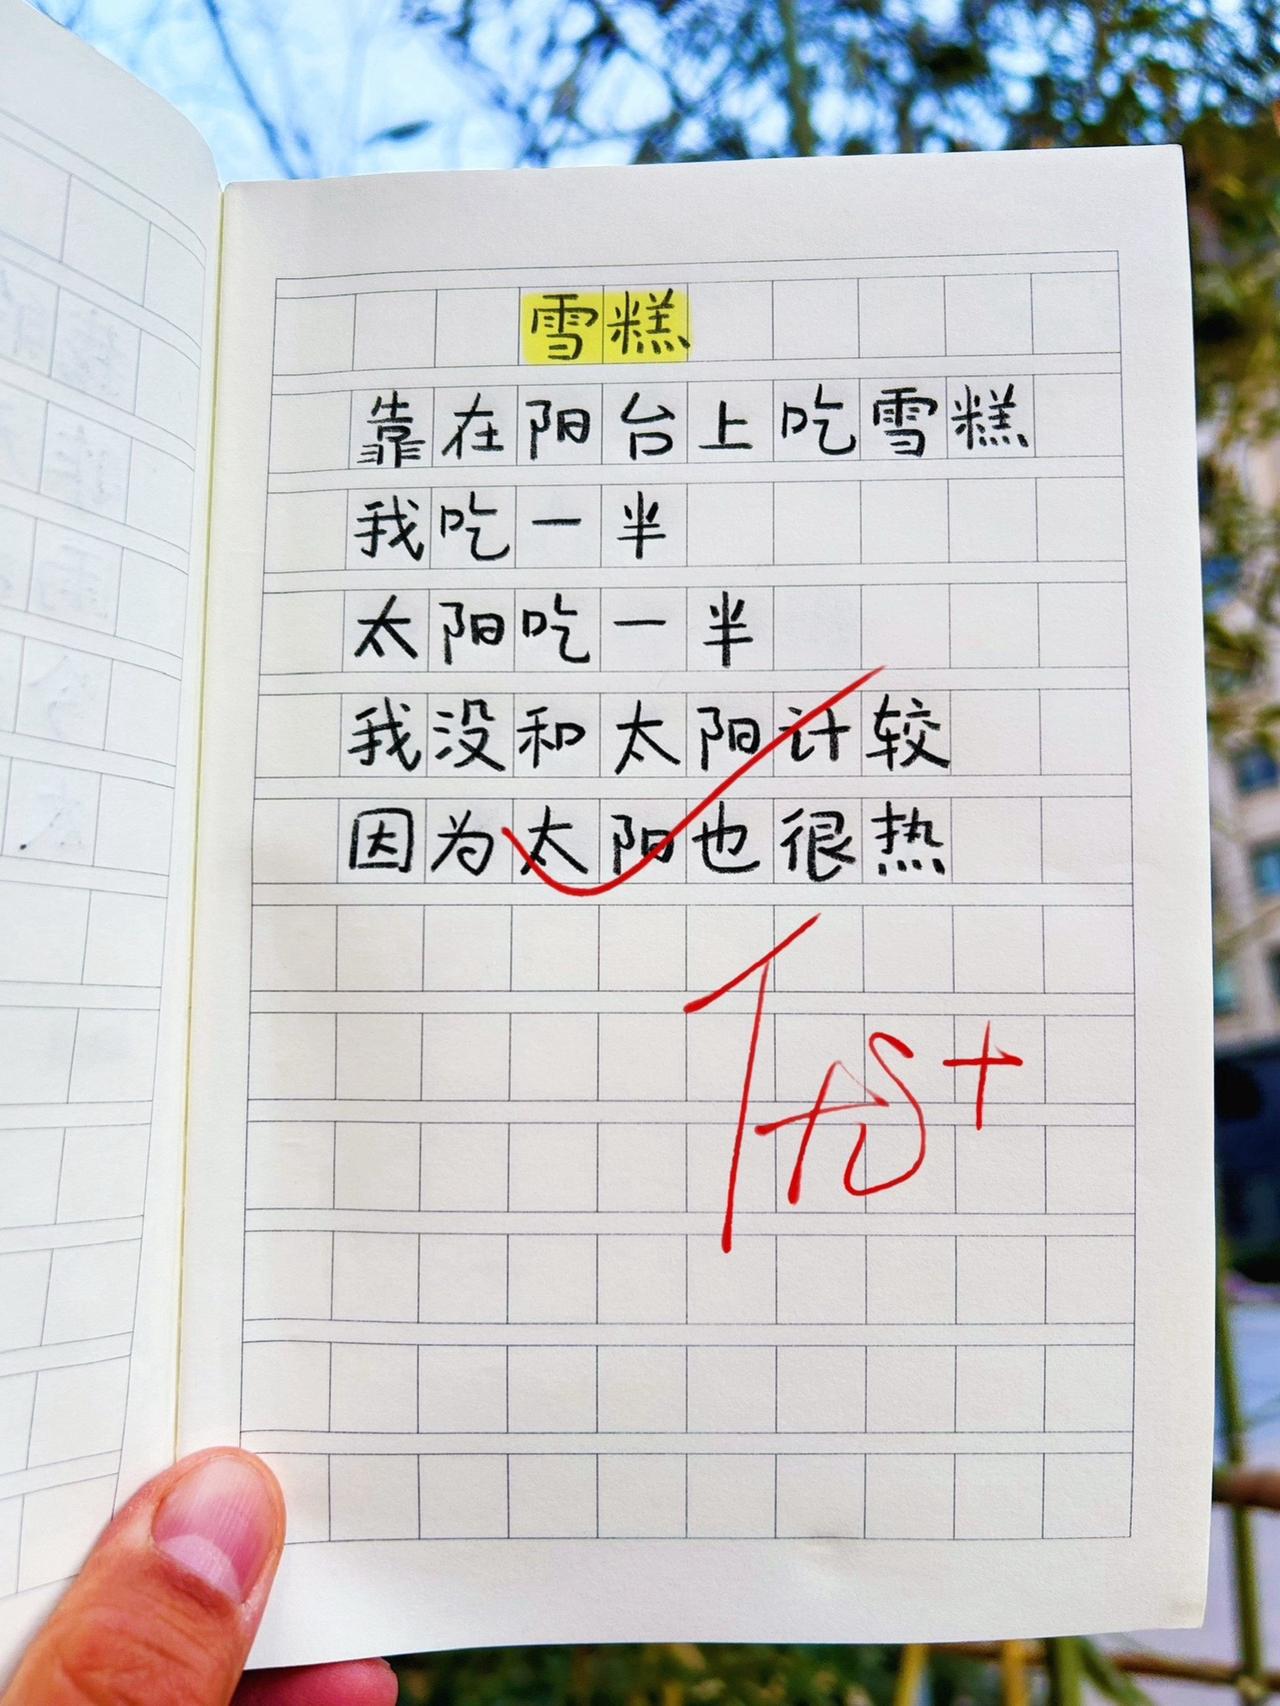 雪糕
靠在阳台上吃雪糕
我吃一半
太阳吃一半
我没和太阳计较
因为太阳也很热